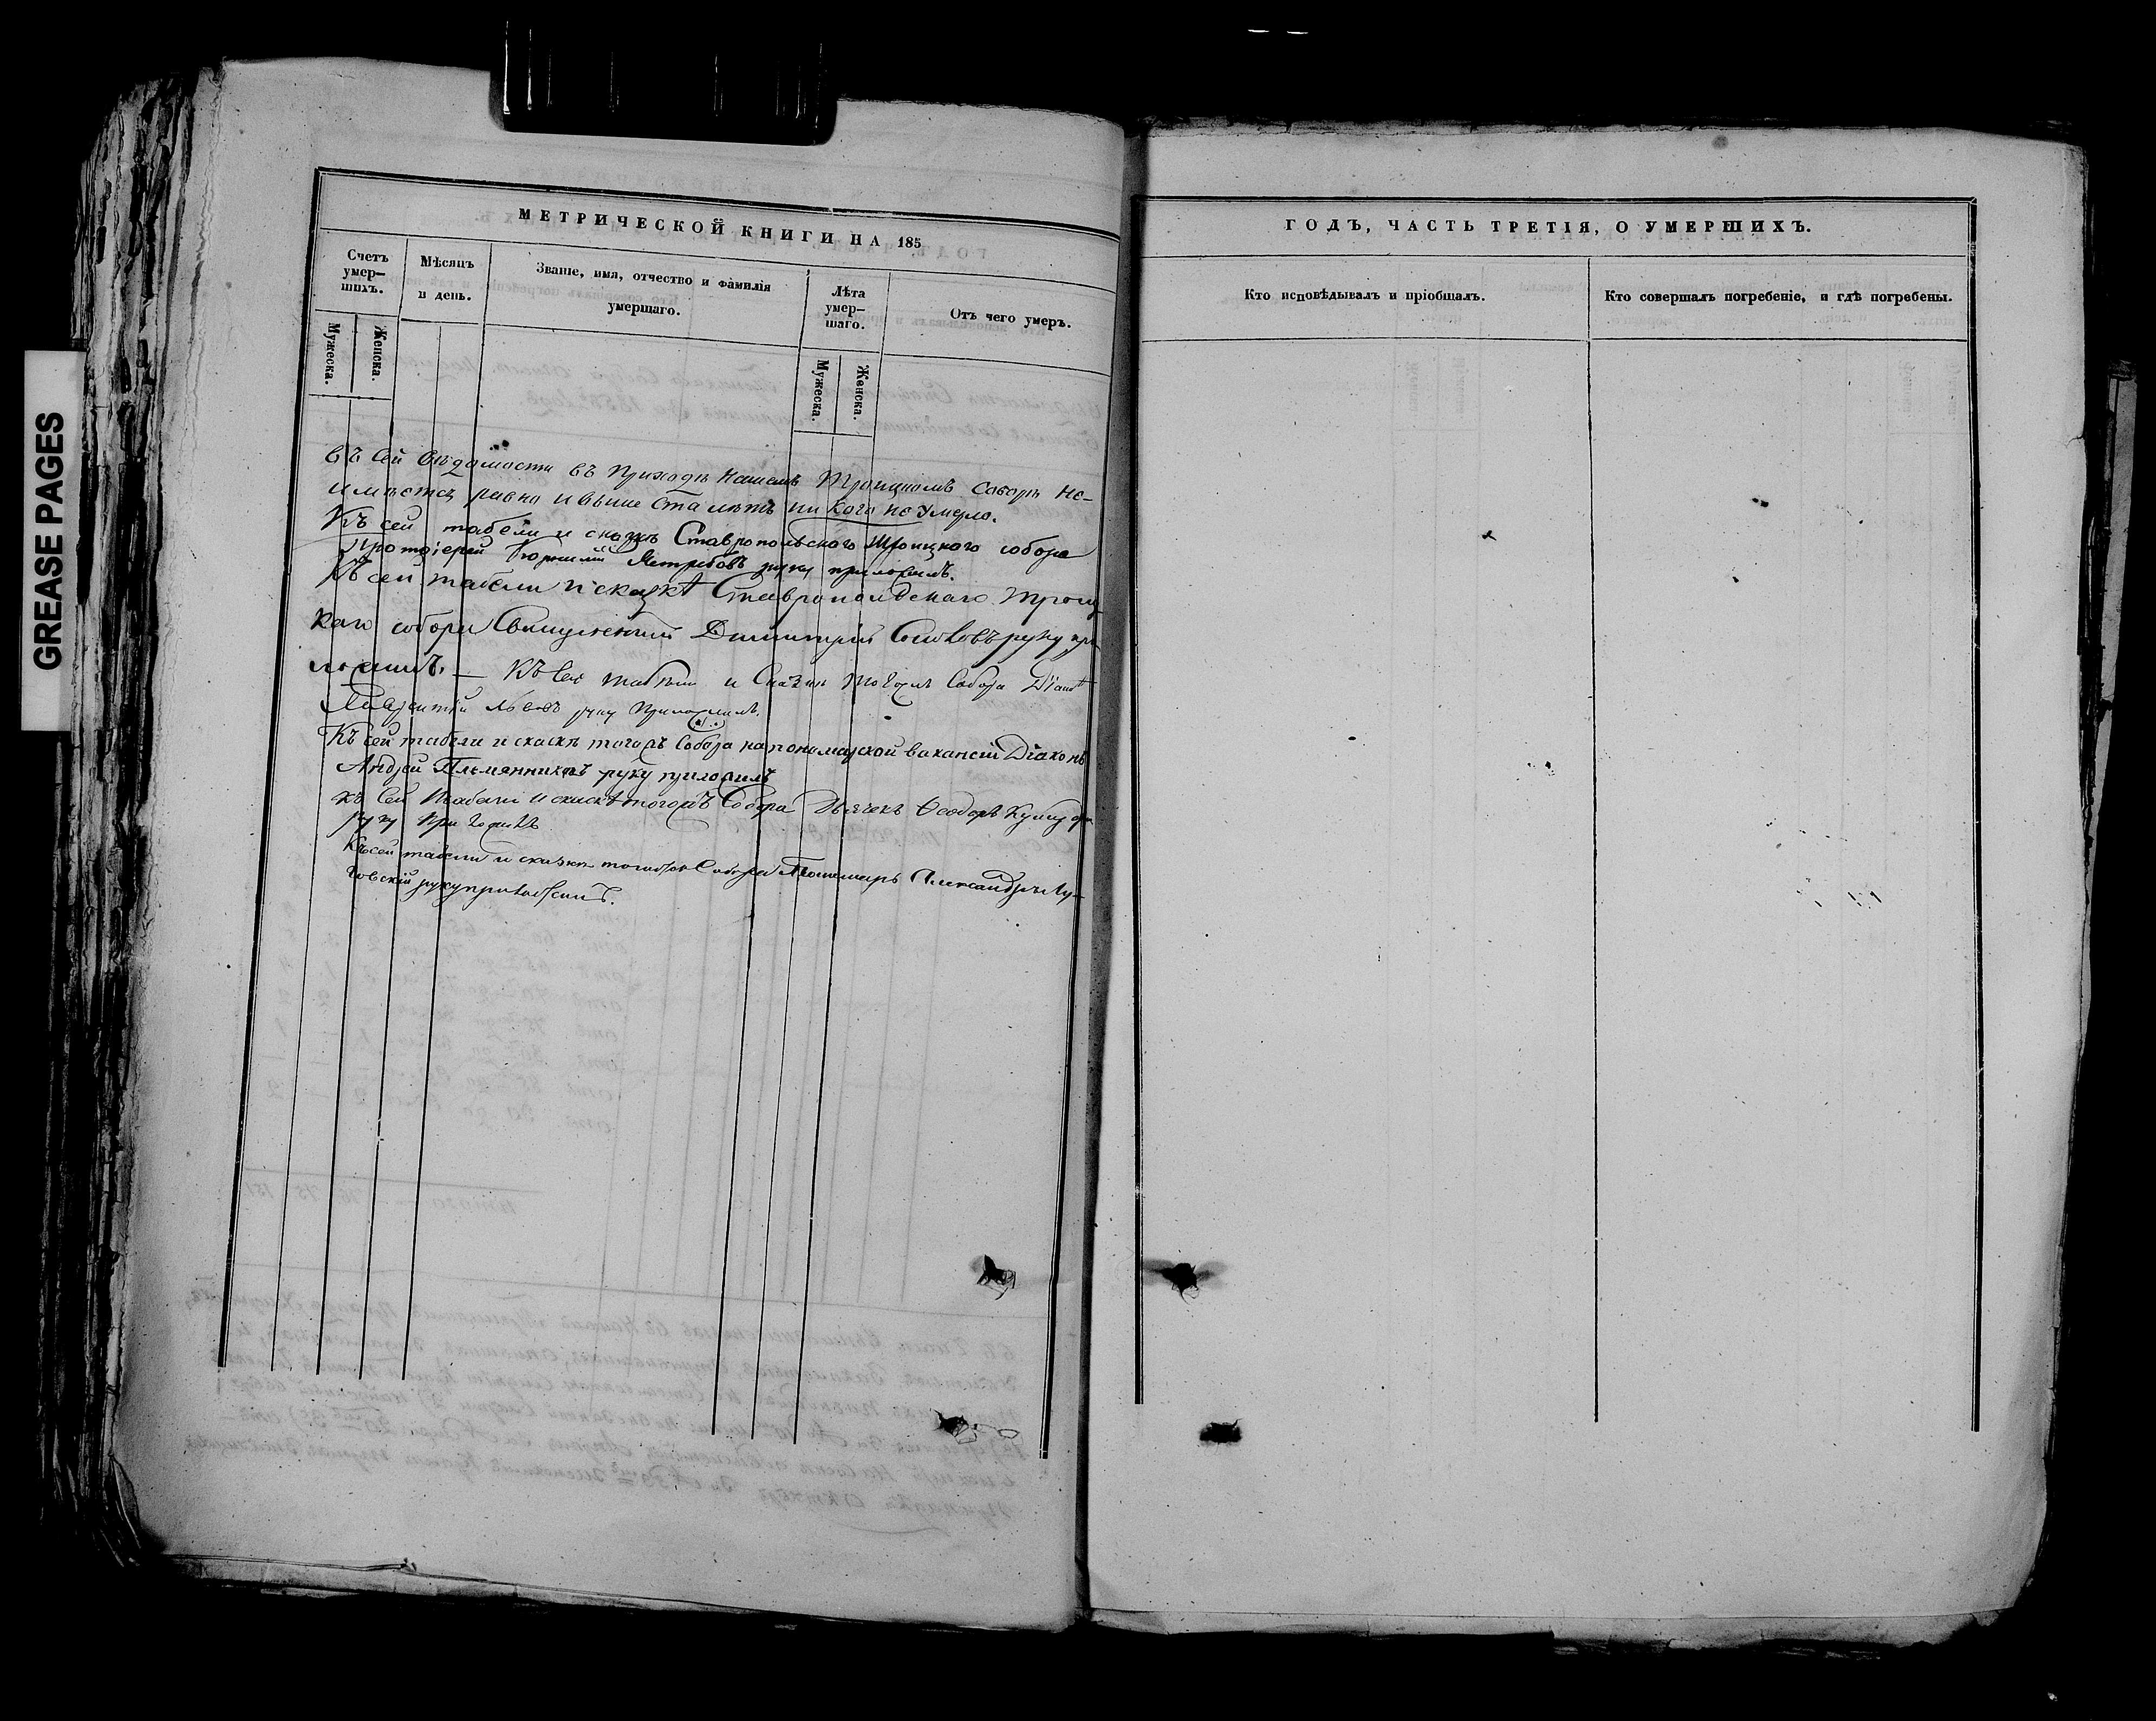 GREASE PAGES
МЕТРИЧЕСКОЙ КНИГИ НА 185
Счетъ умер-
шихъ.
Мужеска.
Женска.
Мѣсяцъ
и день.
Званіе, имя, отчество и фамилія
умершаго.
Лѣта
умер-
шаго.
Мужеска.
Женска.
Отъ чего умеръ.
въ сей Вѣдомости въ приходѣ нашемъ Троицкомъ Соборѣ не-
имѣется равно и выше ста лѣтъ никого не умерло.
Къ сей табели и сказкѣ Ставропольского Троицкого собора
протоіерей Ястребовъ руку приложилъ.
Къ сей табели и сказкѣ Ставропольскаго Троиц
каго собора Священникъ Димитрій руку при
ложилъ. — Къ сей табели и Сказкѣ тогожъ Собора
Лаврентій Львовъ руку приложилъ.
Къ сей табели и сказкѣ тогожъ Собора на пономарской вакансіи Діаконъ
Андрей Племянниковъ руку приложилъ
Къ Сей табели и сказкѣ тогожъ Собора Дьячекъ Ѳеодоръ
руку приложилъ
Къ сей табели и сказкѣ тогожъ Собора Пономарь Александръ
руку приложилъ.
ГОДЪ, ЧАСТЬ ТРЕТІЯ, О УМЕРШИХЪ.
Кто исповѣдывалъ и пріобщалъ.
Кто совершалъ погребеніе, и гдѣ погребены.